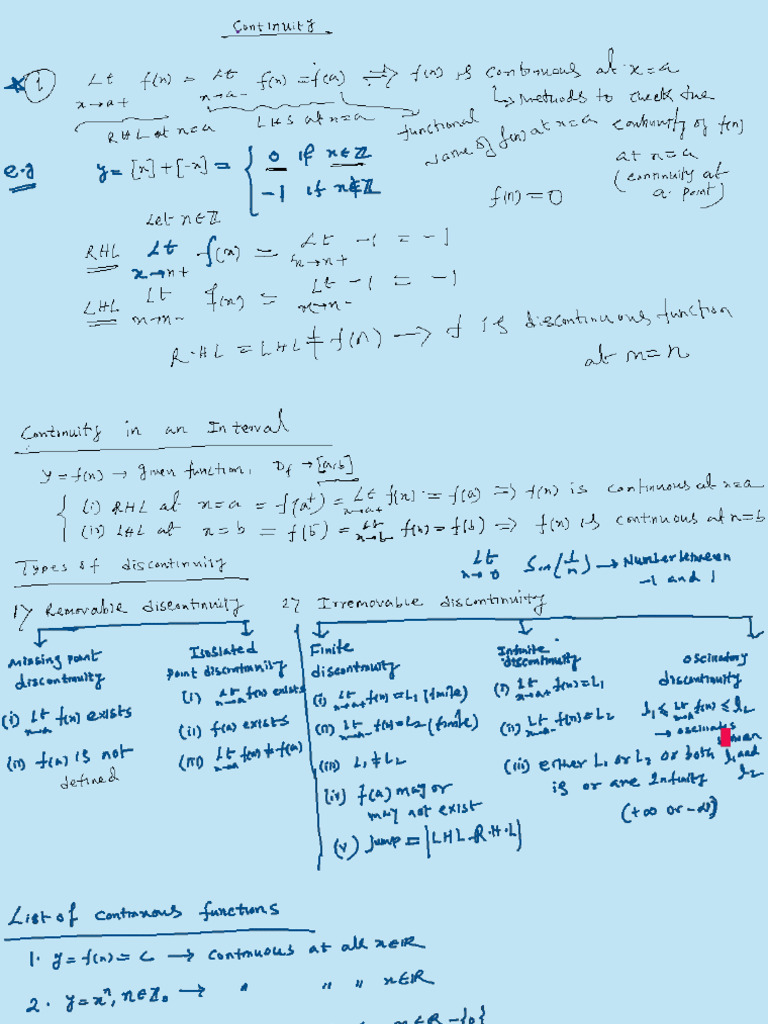 Continuity
① Lt x→a+ f(x) = Lt x→a- f(x) = f(a) ⟺ f(x) is continuous at x=a
RHL at x=a   LHS at x=a   functional value of f(x) at x=a
↳ methods to check the continuity of f(x) at x=a (continuity at a point)
e.g y = [x]+[-x] = { 0 if x∈ℤ
-1 if x∉ℤ
f(n)=0
Let n∈ℤ
RHL Lt x→n+ f(x) = Lt x→n+ -1 = -1
LHL Lt x→n- f(x) = Lt x→n- -1 = -1
R.HL = LHL ≠ f(n) → f is discontinuous function
at x=n
Continuity in an Interval
y=f(x) → given function, Df → [a,b]
(i) RHL at x=a = f(a+) = Lt x→a+ f(x) = f(a) ⇒ f(x) is continuous at x=a
(ii) LHL at x=b = f(b-) = Lt x→b- f(x) = f(b) ⇒ f(x) is continuous at x=b
Types of discontinuity
Lt x→0 Sin(1/x) → Number between
-1 and 1
1) Removable discontinuity   2) Irremovable discontinuity
Missing point
discontinuity
(i) Lt x→a f(x) exists
(ii) f(a) is not
defined
Isolated
point discontinuity
(i) Lt x→a f(x) exists
(ii) f(a) exists
(iii) Lt x→a f(x) ≠ f(a)
Finite
discontinuity
(i) Lt x→a+ f(x)=L1 (finite)
(ii) Lt x→a- f(x)=L2 (finite)
(iii) L1 ≠ L2
(iv) f(a) may or
may not exist
(v) Jump = |LHL-R.H.L|
Infinite
discontinuity
(i) Lt x→a+ f(x)=L1
(ii) Lt x→a- f(x)=L2
(iii) either L1 or L2 or both
is or are Infinity
(+∞ or -∞)
Oscillatory
discontinuity
l1 ≤ Lt x→a f(x) ≤ l2
→ oscillates
l1 and
l2
List of continuous functions
1. y=f(x)=c → continuous at all x∈ℝ
2. y=xⁿ, n∈ℤ≥0 → " " " x∈ℝ
x∈R-{0}